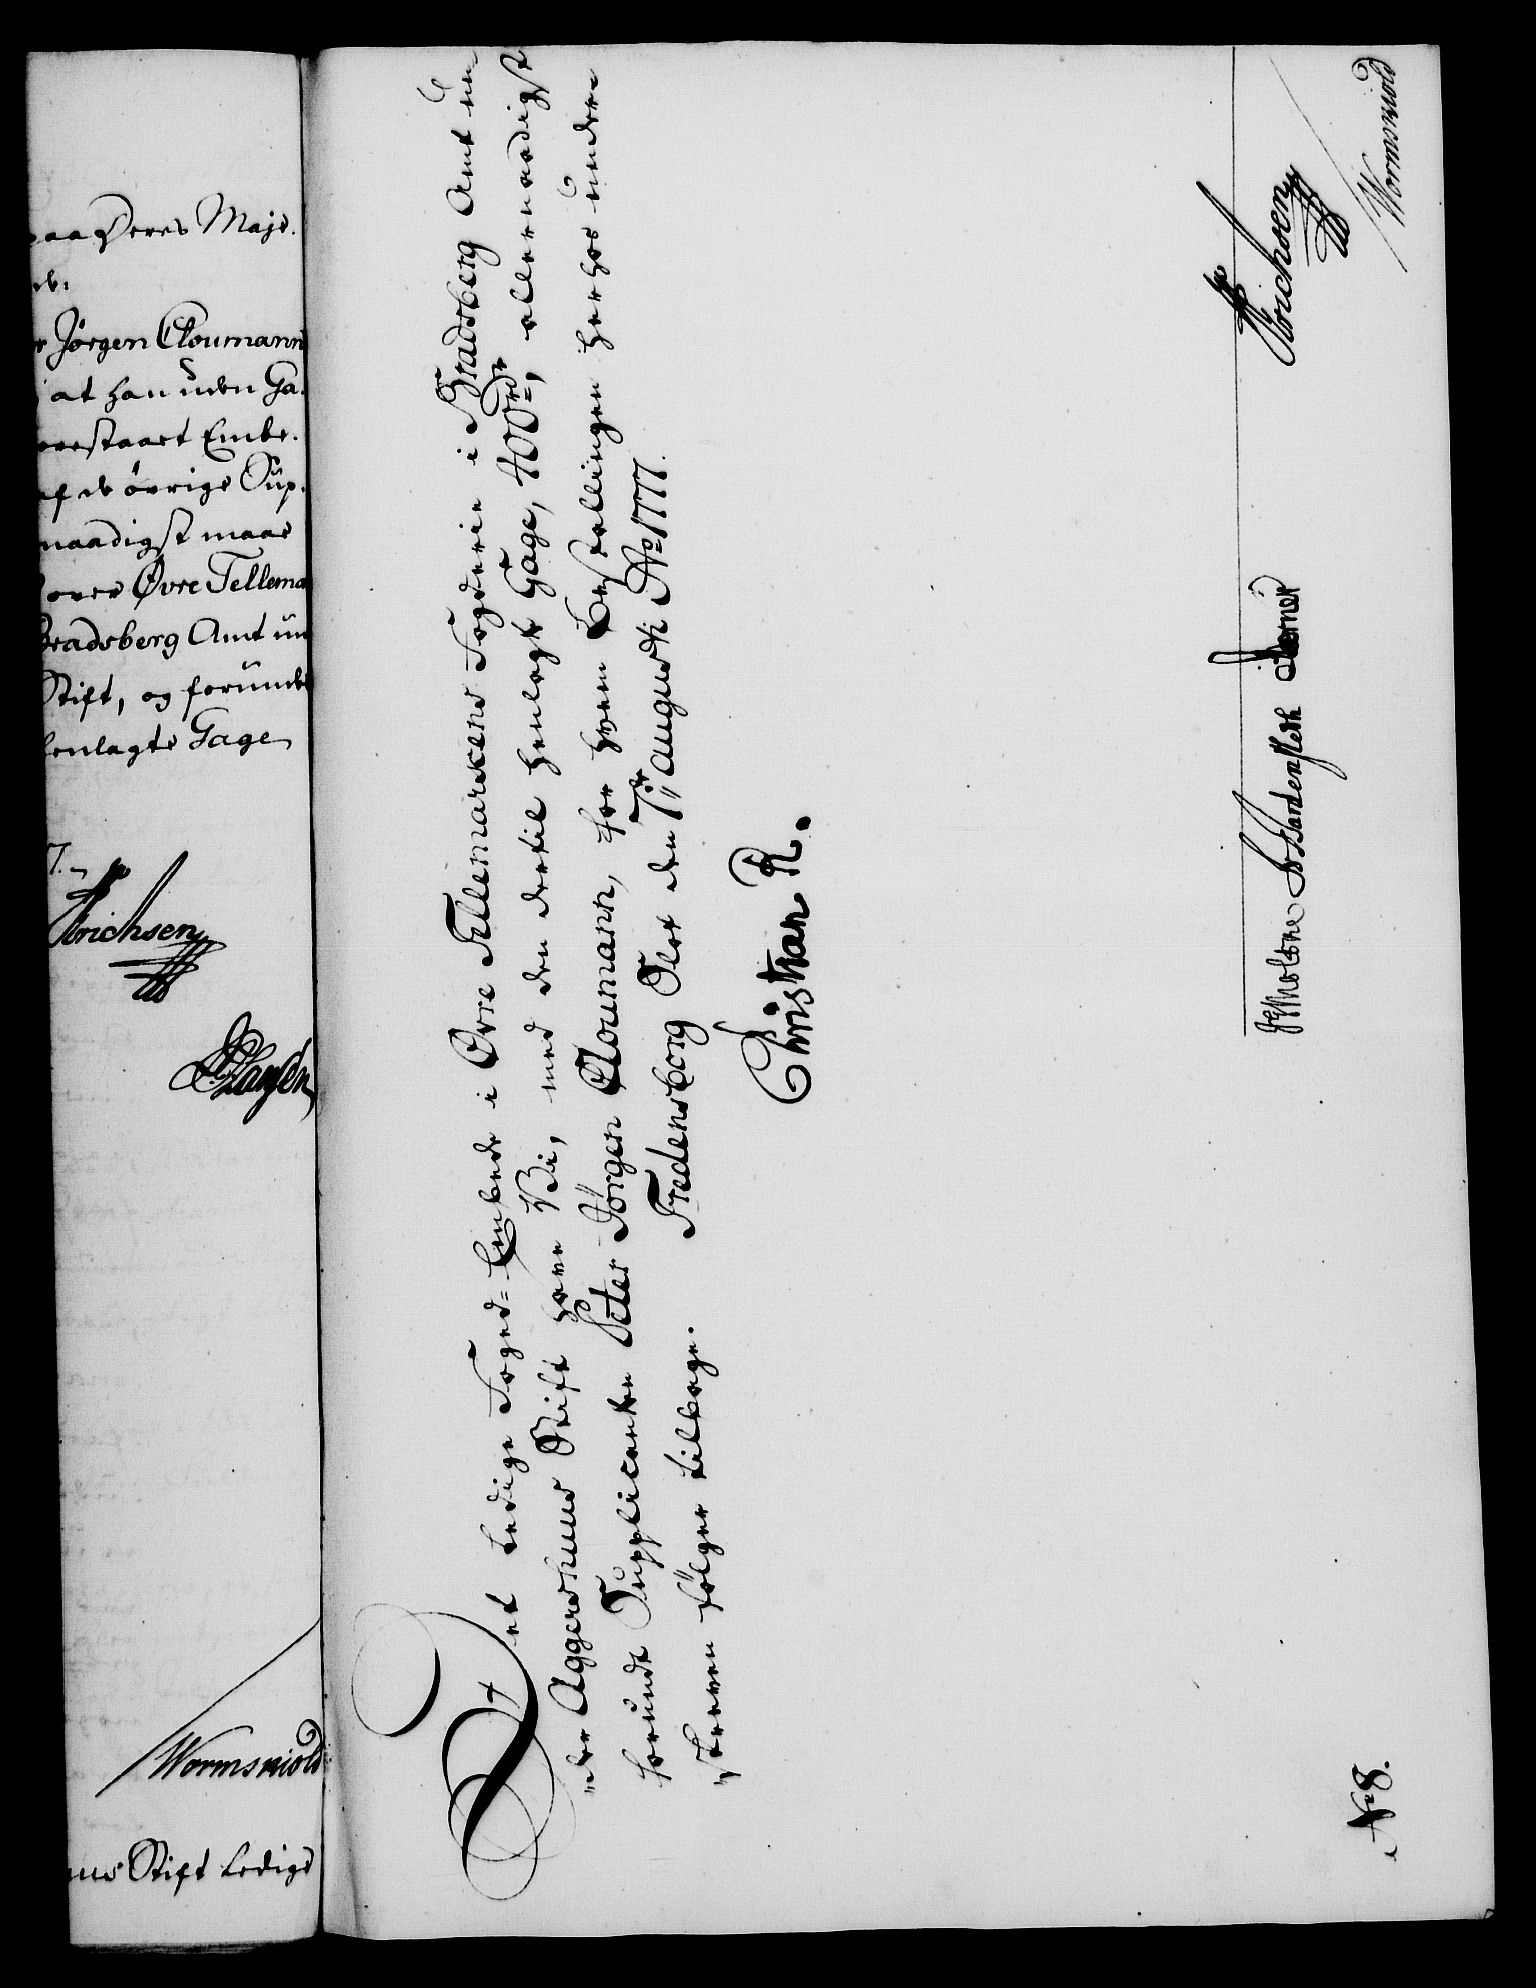 paa Deres Maje.
de:
r Jørgen Cloumann
at han uden Ga.
orestaaet Embe.
af de øvrige Sup.
naadigst maae
over Øvre Tellema
Bradsberg Amt un
Stift, og forunde
henlagte Gage
7.
Erichsen
Wormskiold
uus Stift ledige
Det ledige Foged-Embede i Øvre Tellemarkens Fogderie i Bradsberg Amt un
"der Aggershuus Stift have Vi, med den dertil henlagte Gage, 400 rdr, allernaadigst
forundt Supplicanten Peter Jørgen Cloumann, for hvem Bestallingen herhos under
"skreven følger tilbage. Fredensborg Slot den 7de Augusti Ao 1777.
Christian R.
JEMoltke S Schardenfleth
Erichsen
Wormskiold
No 8.